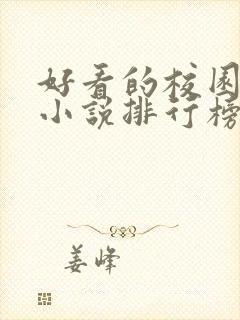 好看的校园
小说排行榜
姜峰